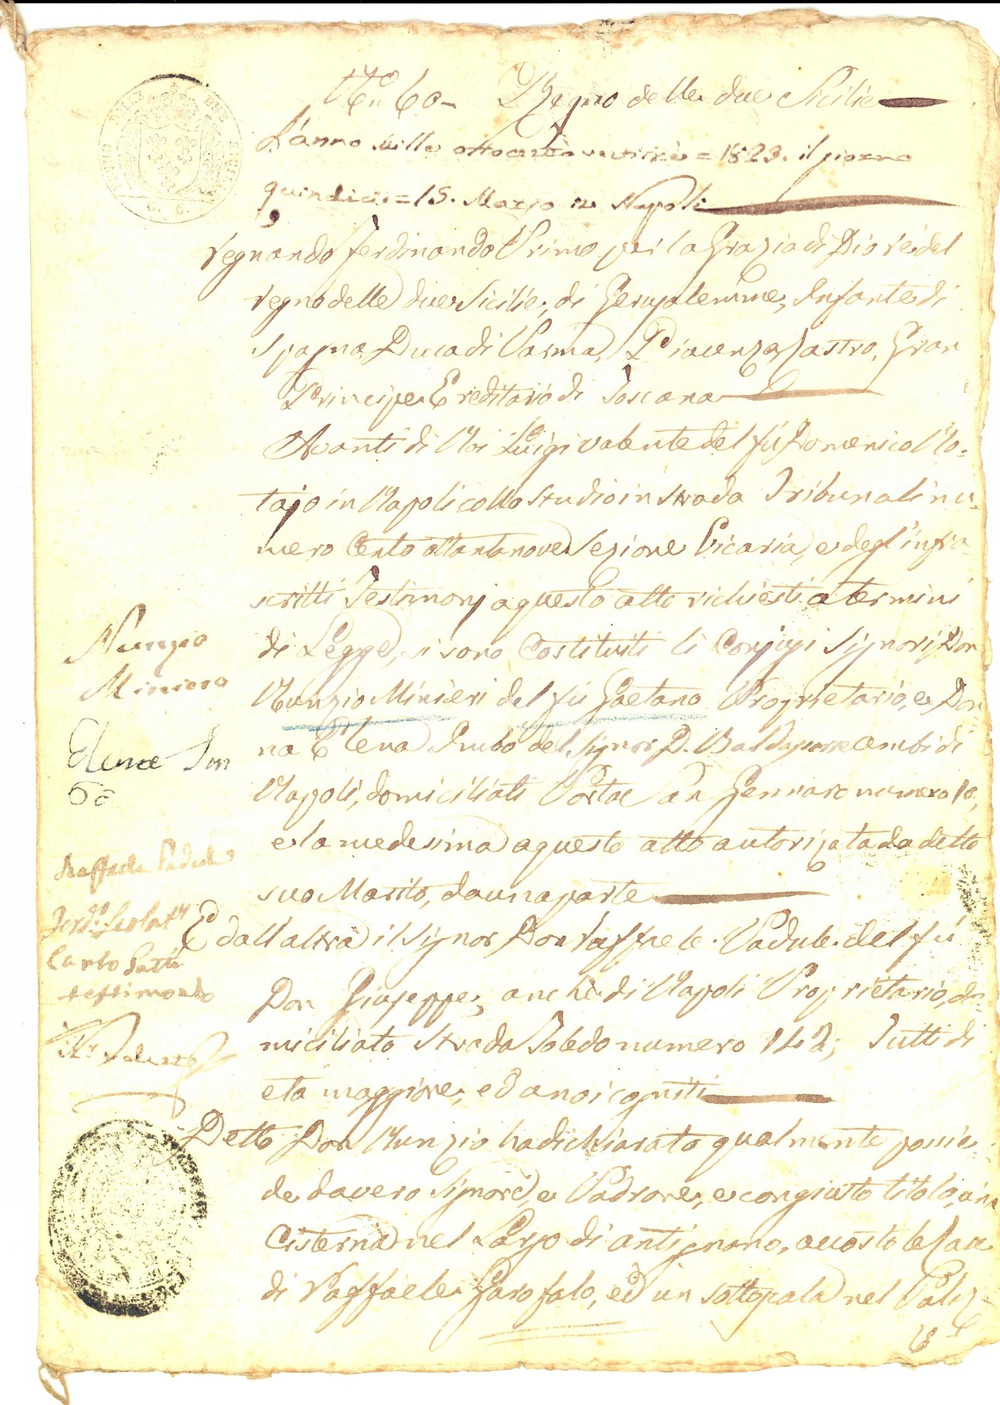 N.º 60 Regno delle due Sicilie
L'anno mille ottocento ventitrè = 1823. il giorno
quindici = 15. Marzo in Napoli
regnando Ferdinando Primo per la Grazia di Dio rè del
regno delle due Sicilie, di Gerusalemme, Infante di
Spagna, Duca di Parma, Piacenza, Castro, Gran
Principe Ereditario di Toscana
Avanti di Noi Luigi Valente del fù Domenico No=
tajo in Napoli collo studio in strada Tribunali nu=
mero Cento ottantanove Sezione Vicaria, e degl'infra=
scritti Testimonj a questo atto richiesti a termini
di Legge, si sono Costituiti li Conjugi Signori Don
Nunzio Minieri del fù Gaetano Proprietario, e Don=
na Elena del Signor D. Baldassarre ambi di
Napoli, domiciliati Porta San Gennaro numero 10,
e la medesima a questo atto autorizzata da detto
suo Marito, da una parte
E dall'altra il Signor Don Raffaele Padule del fù
Don Giuseppe, anche di Napoli Proprietario, do=
miciliato Strada Toledo numero 142; Tutti di
età maggiore, ed a noi cogniti
Detto Don Nunzio ha dichiarato qualmente possie=
de da vero Signore, e Padrone, e con giusto titolo, una
Cisterna nel Largo di Antignano, accosto le Case
di Raffaele Garofalo, ed un sottoscala nel Palaz=
Nunzio
Miniero
Elena Im
bò
Raffaele Padule
Carlo
testimonio